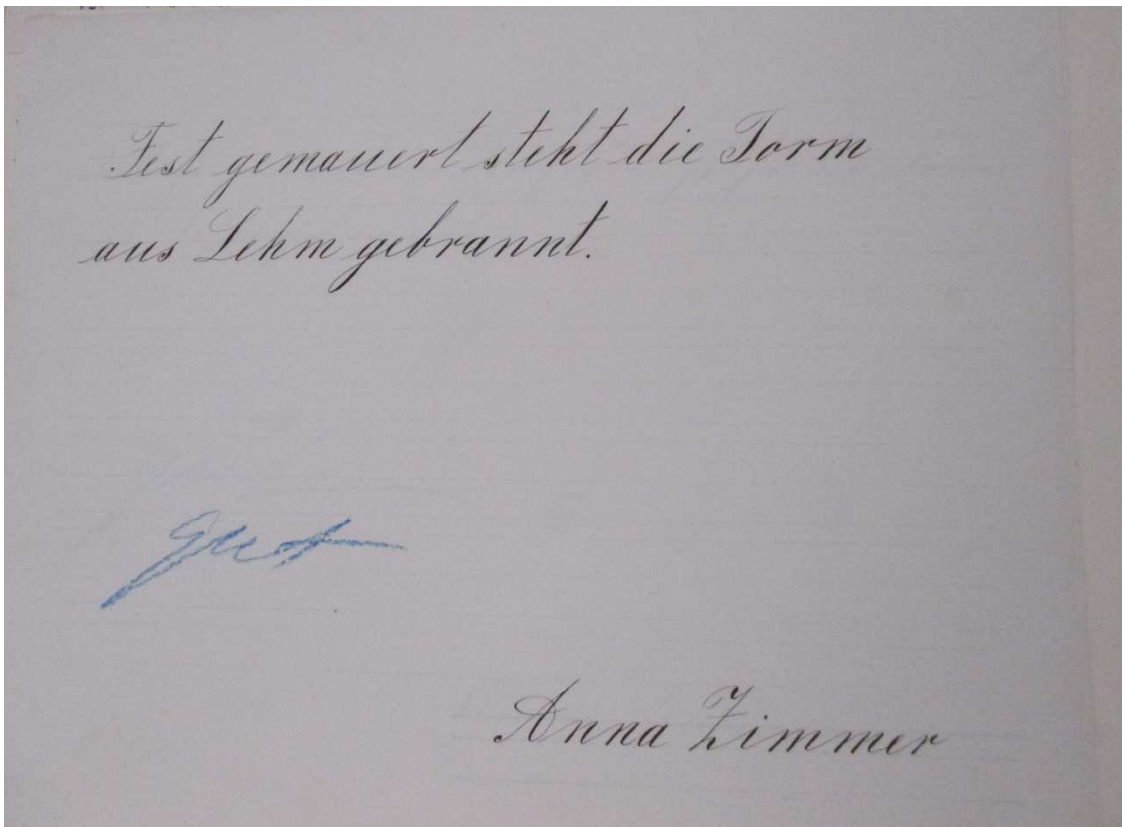 Fest gemauert steht die Form
aus Lehm gebrannt.
gut
Anna Zimmer